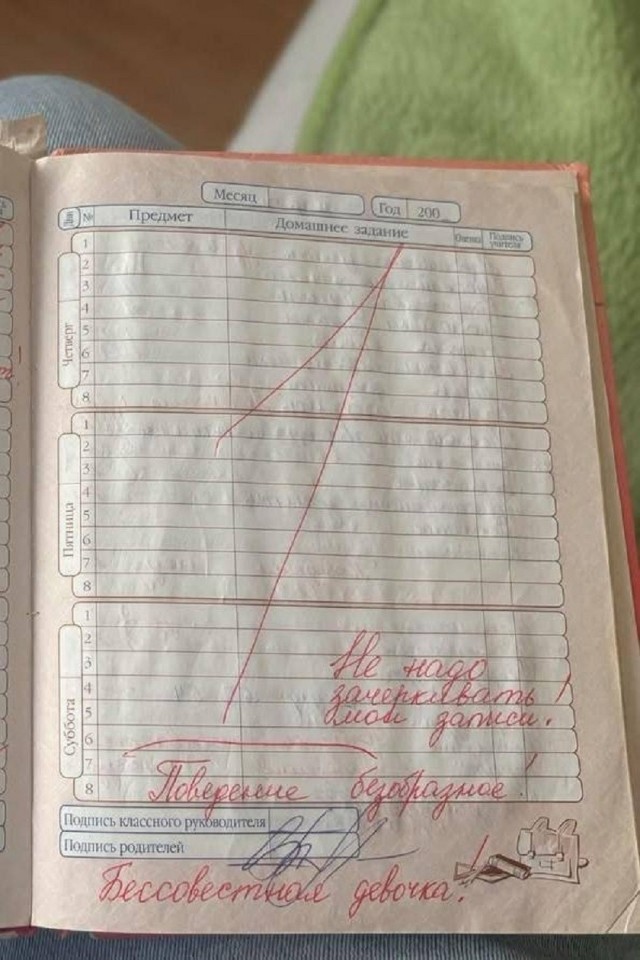 Месяц
Год 200
Дни № Предмет Домашнее задание Оценка Подпись учителя
Четверг
1
2
3
4
5
6
7
8
Пятница
1
2
3
4
5
6
7
8
Суббота
1
2
3
4
5
6
7
8
Не надо
зачеркивать!
мои записи.
Поведение безобразное!
Подпись классного руководителя
Подпись родителей
Бессовестная девочка!